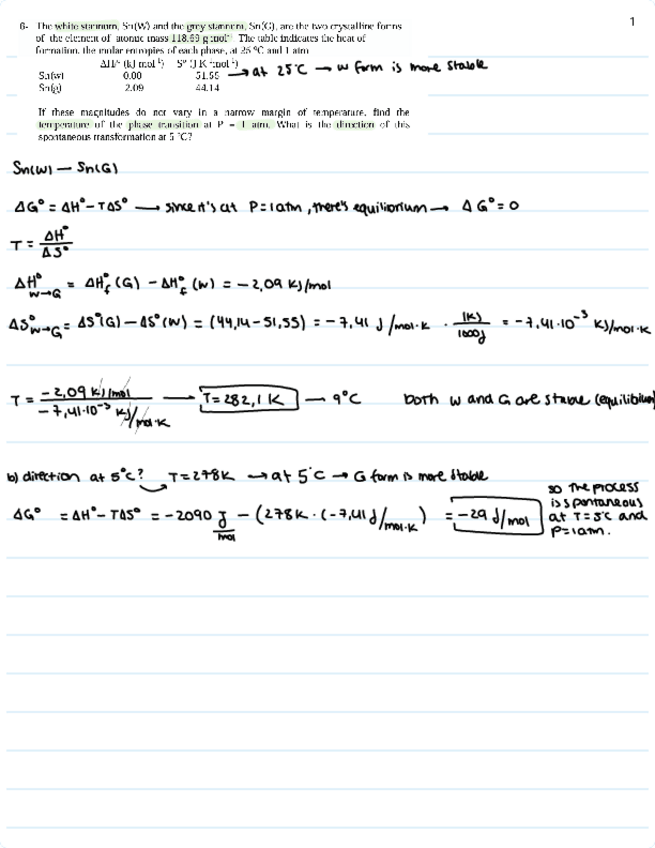 1
6- The white stannum, Sn(W) and the grey stannum, Sn(G), are the two crystalline forms
of the element of atomic mass 118.69 g·mol⁻¹. The table indicates the heat of
formation, the molar entropies of each phase, at 25 °C and 1 atm
ΔH° (kJ mol⁻¹) S° (J K⁻¹ mol⁻¹)
Sn(w) 0.00 51.55 → at 25°C → W form is more stable
Sn(g) 2.09 44.14
If these magnitudes do not vary in a narrow margin of temperature, find the
temperature of the phase transition at P = 1 atm. What is the direction of this
spontaneous transformation at 5 °C?
Sn(W) — Sn(G)
ΔG° = ΔH° - TΔS° → since it's at P=1atm, there's equilibrium → ΔG°=0
T = ΔH° / ΔS°
ΔH°W→G = ΔH°f (G) - ΔH°f (W) = -2,09 kJ/mol
ΔS°W→G = ΔS°(G) - ΔS°(W) = (44,14-51,55) = -7,41 J/mol·K · 1KJ/1000J = -7,41·10⁻³ KJ/mol·K
T = -2,09 KJ/mol / -7,41·10⁻³ KJ/mol·K → T=282,1 K → 9°C both W and G are stable (equilibium)
b) direction at 5°C? T=278K → at 5°C → G form is more stable
ΔG° = ΔH° - TΔS° = -2090 J/mol - (278K · (-7,41 J/mol·K) = -29 J/mol
so the process
is spontaneous
at T=5°C and
P=1atm.